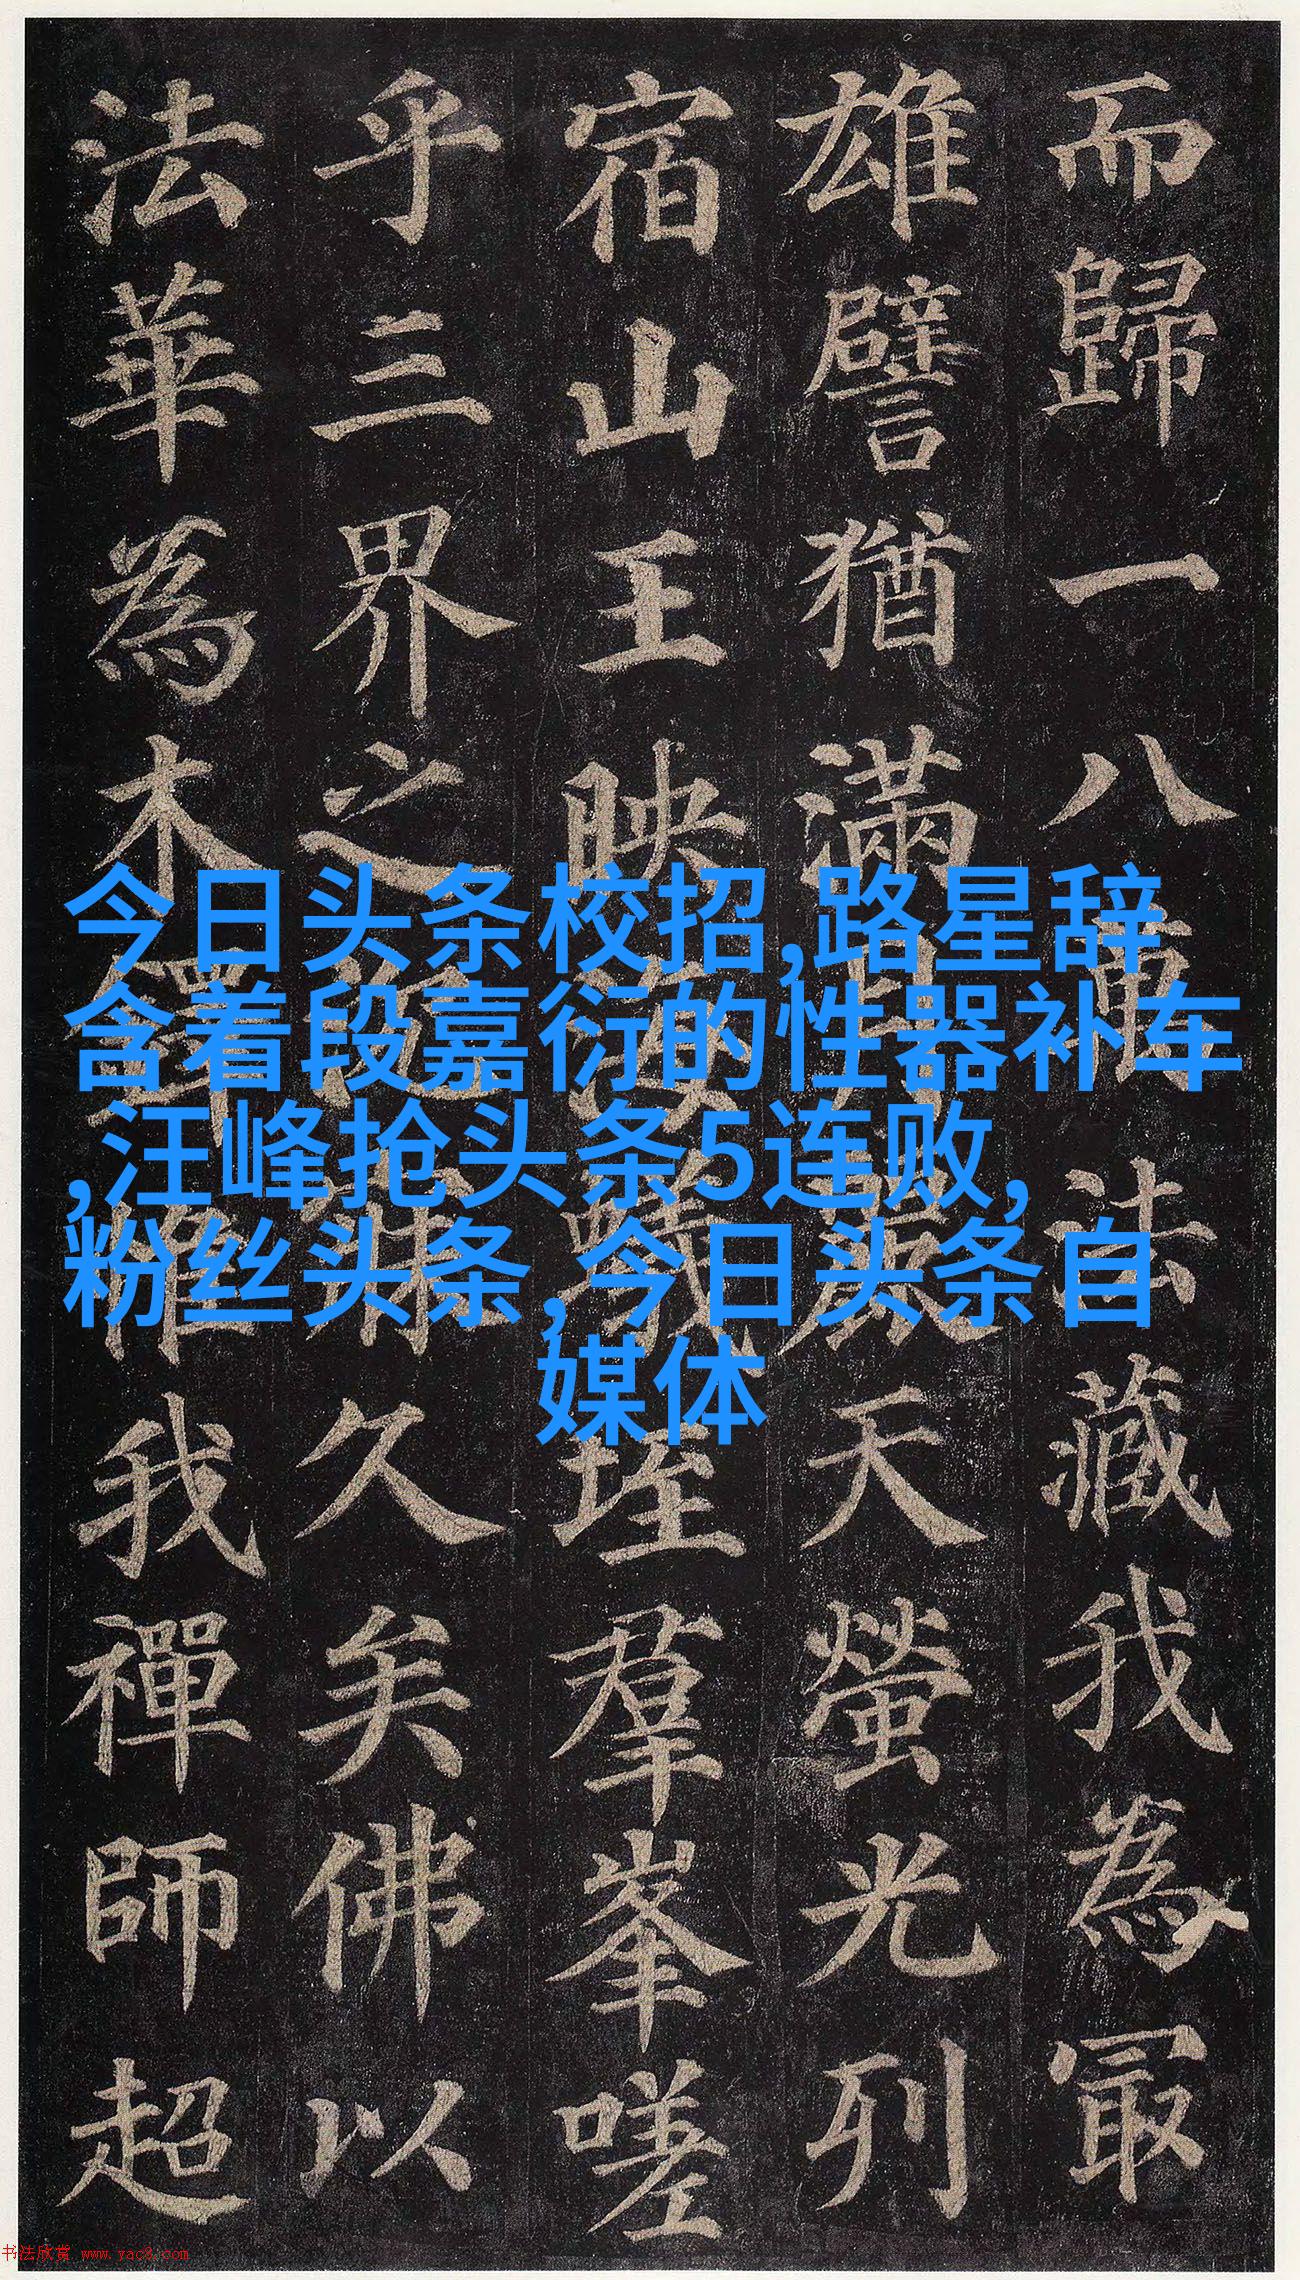 而歸一八萬法藏我為冣
雄譬猶滿麗天螢光列
宿山王映海蟻垤羣峯嗟
乎三界之久矣佛以
法華為木鐸惟我禪師超
今日头条校招,路星辞
含着段嘉衍的性器补车
,汪峰抢头条5连败,
粉丝头条,今日头条自
媒体
书法欣赏 www.yac8.com